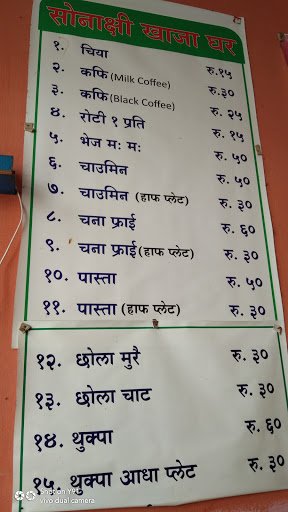 सोनाक्षी खाजा घर
१. चिया रु.१५
२. कफि (Milk Coffee) रु.३०
३. कफि (Black Coffee) रु. २५
४. रोटी १ प्रति रु. १५
५. भेज मः मः रु. ५०
६. चाउमिन रु. ५०
७. चाउमिन (हाफ प्लेट) रु. ३०
८. चना फ्राई रु. ६०
९. चना फ्राई (हाफ प्लेट) रु. ३०
१०. पास्ता रु. ५०
११. पास्ता (हाफ प्लेट) रु. ३०
१२. छोला मुरै रु. ३०
१३. छोला चाट रु. ३०
१४. थुक्पा रु. ६०
१५. थुक्पा आधा प्लेट रु. ३०
vivo dual camera